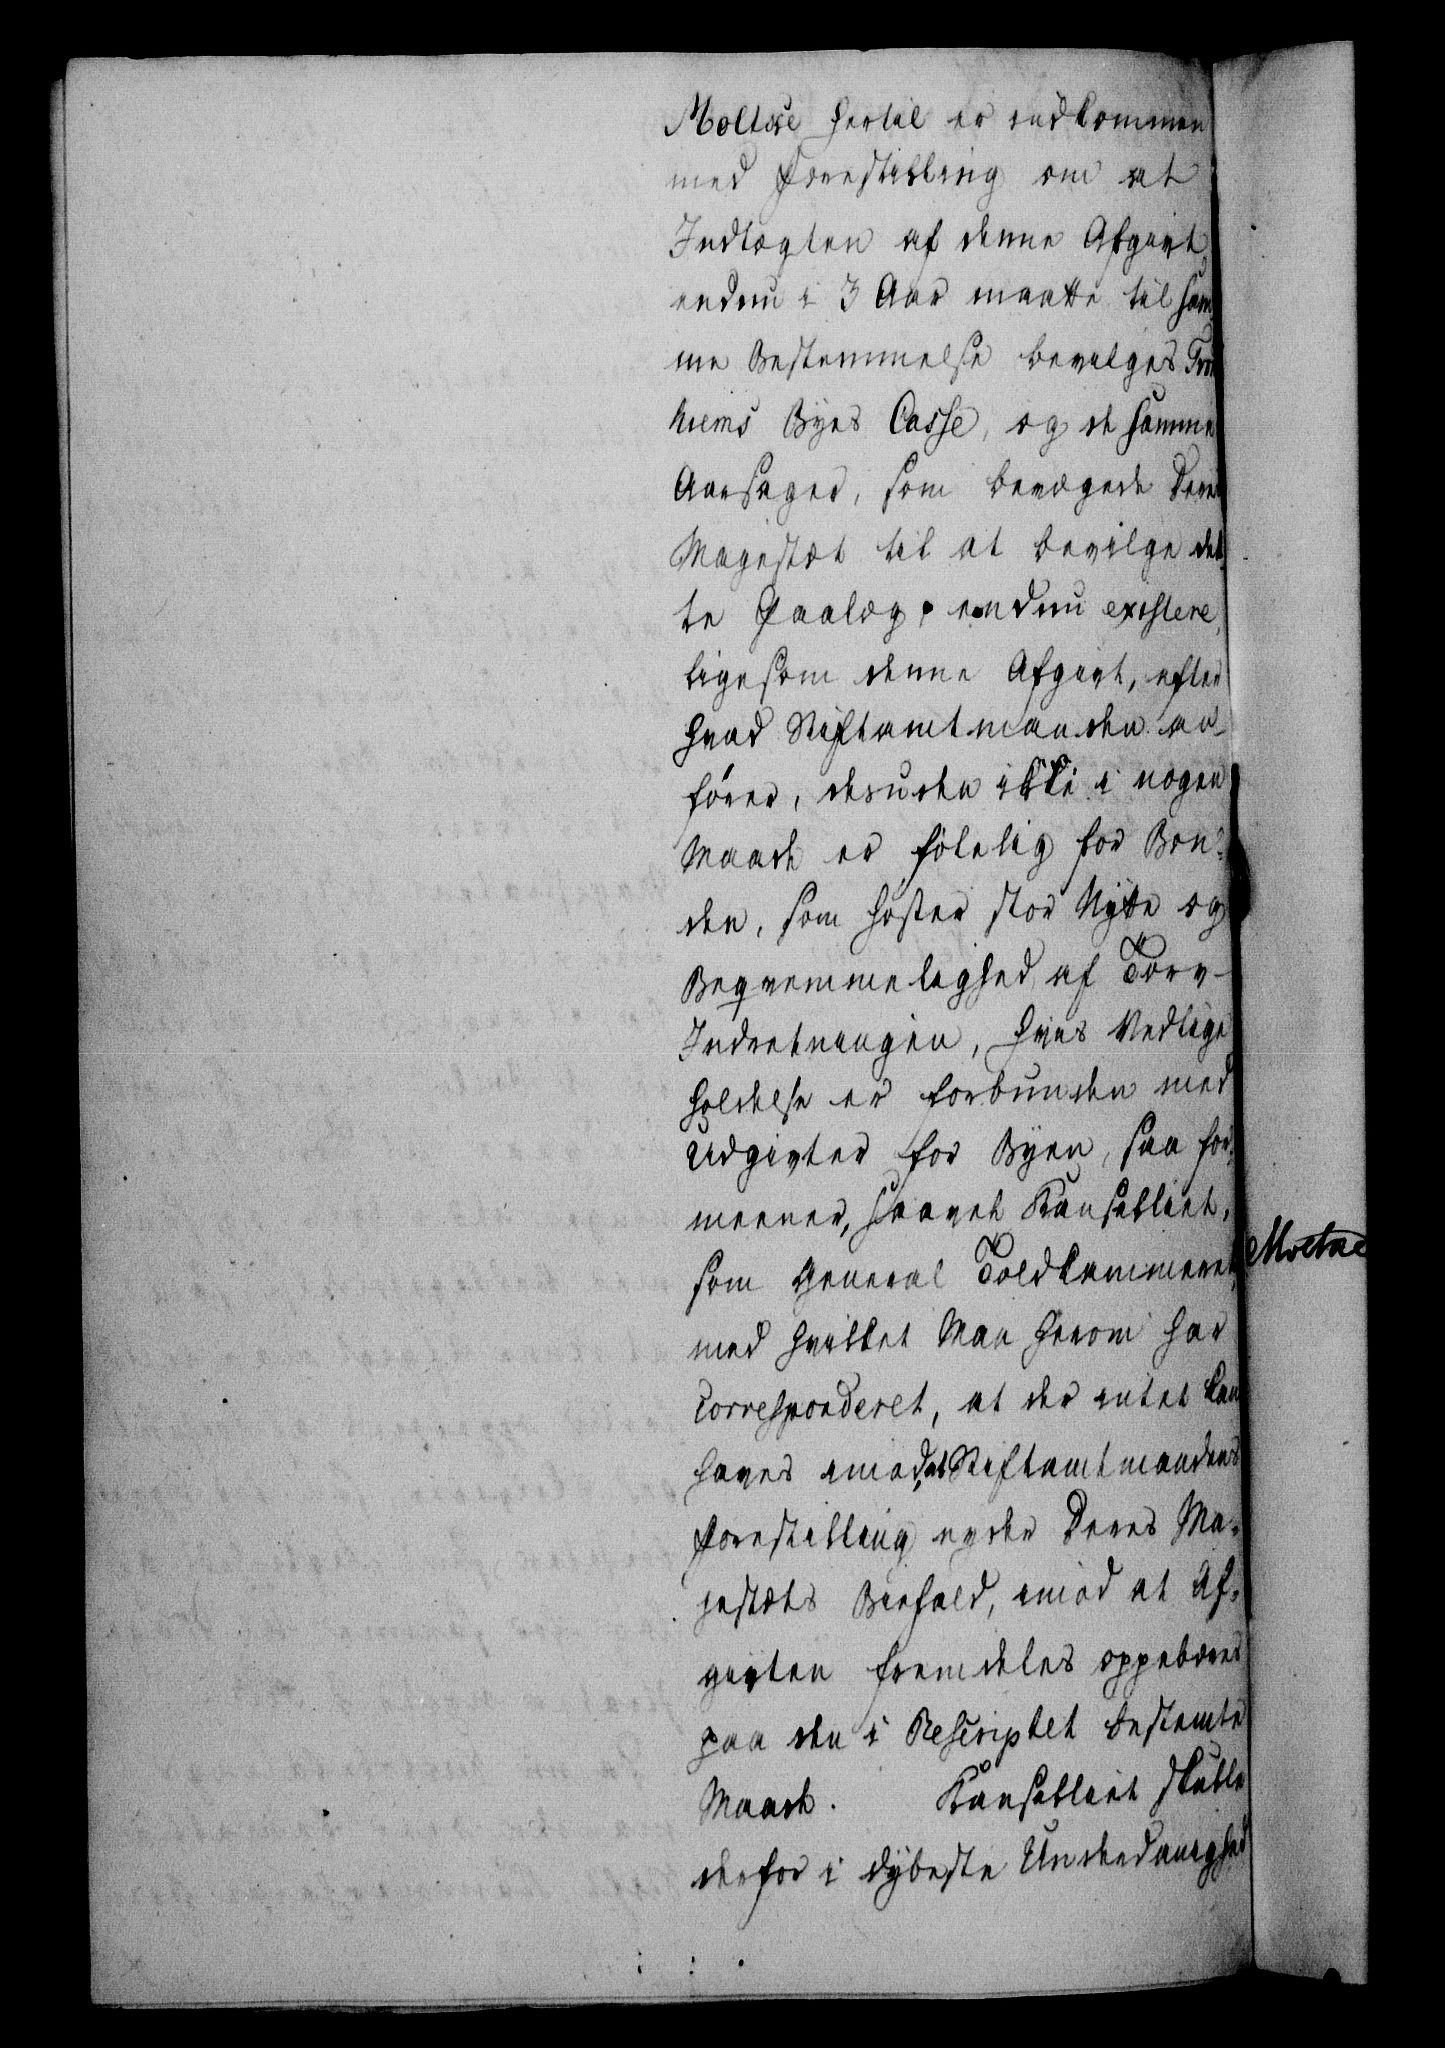 Moltke hertil er indkommen
med Forestilling om at
Indtægten af denne Afgivt
endnu i 3 Aar maatte til sam
me Bestemmelse bevilges Tron
hiems Byes Casse, og de samme
Aarsager, som bevægede Deres
Magestæt til at bevilge det
te Paalæg, endnu existere,
ligesom denne Afgivt, efter
hvad Stiftamtmanden an-
fører, desuden ikke i nogen
Maade er følelig for Bon-
den, som høster stor Nytte og
Beqvemmelighed af Torv-
Indretningen, hvis Vedlige
holdelse er forbunden med
Udgivter for Byen, saa for-
meener, saavel Kanselliet,
som General Toldkammeret,
med hvilket Man herom har
corresponderet, at der intet kan
haves imod, at Stiftamtmandens
Forestilling nyder Deres Ma-
jestæts Biefald, imod at Af-
givten fremdeles oppebæres
paa den i Rescriptet bestemte
Maade. Kanselliet skulle
derfor i dybeste Underdanighed
Moltke